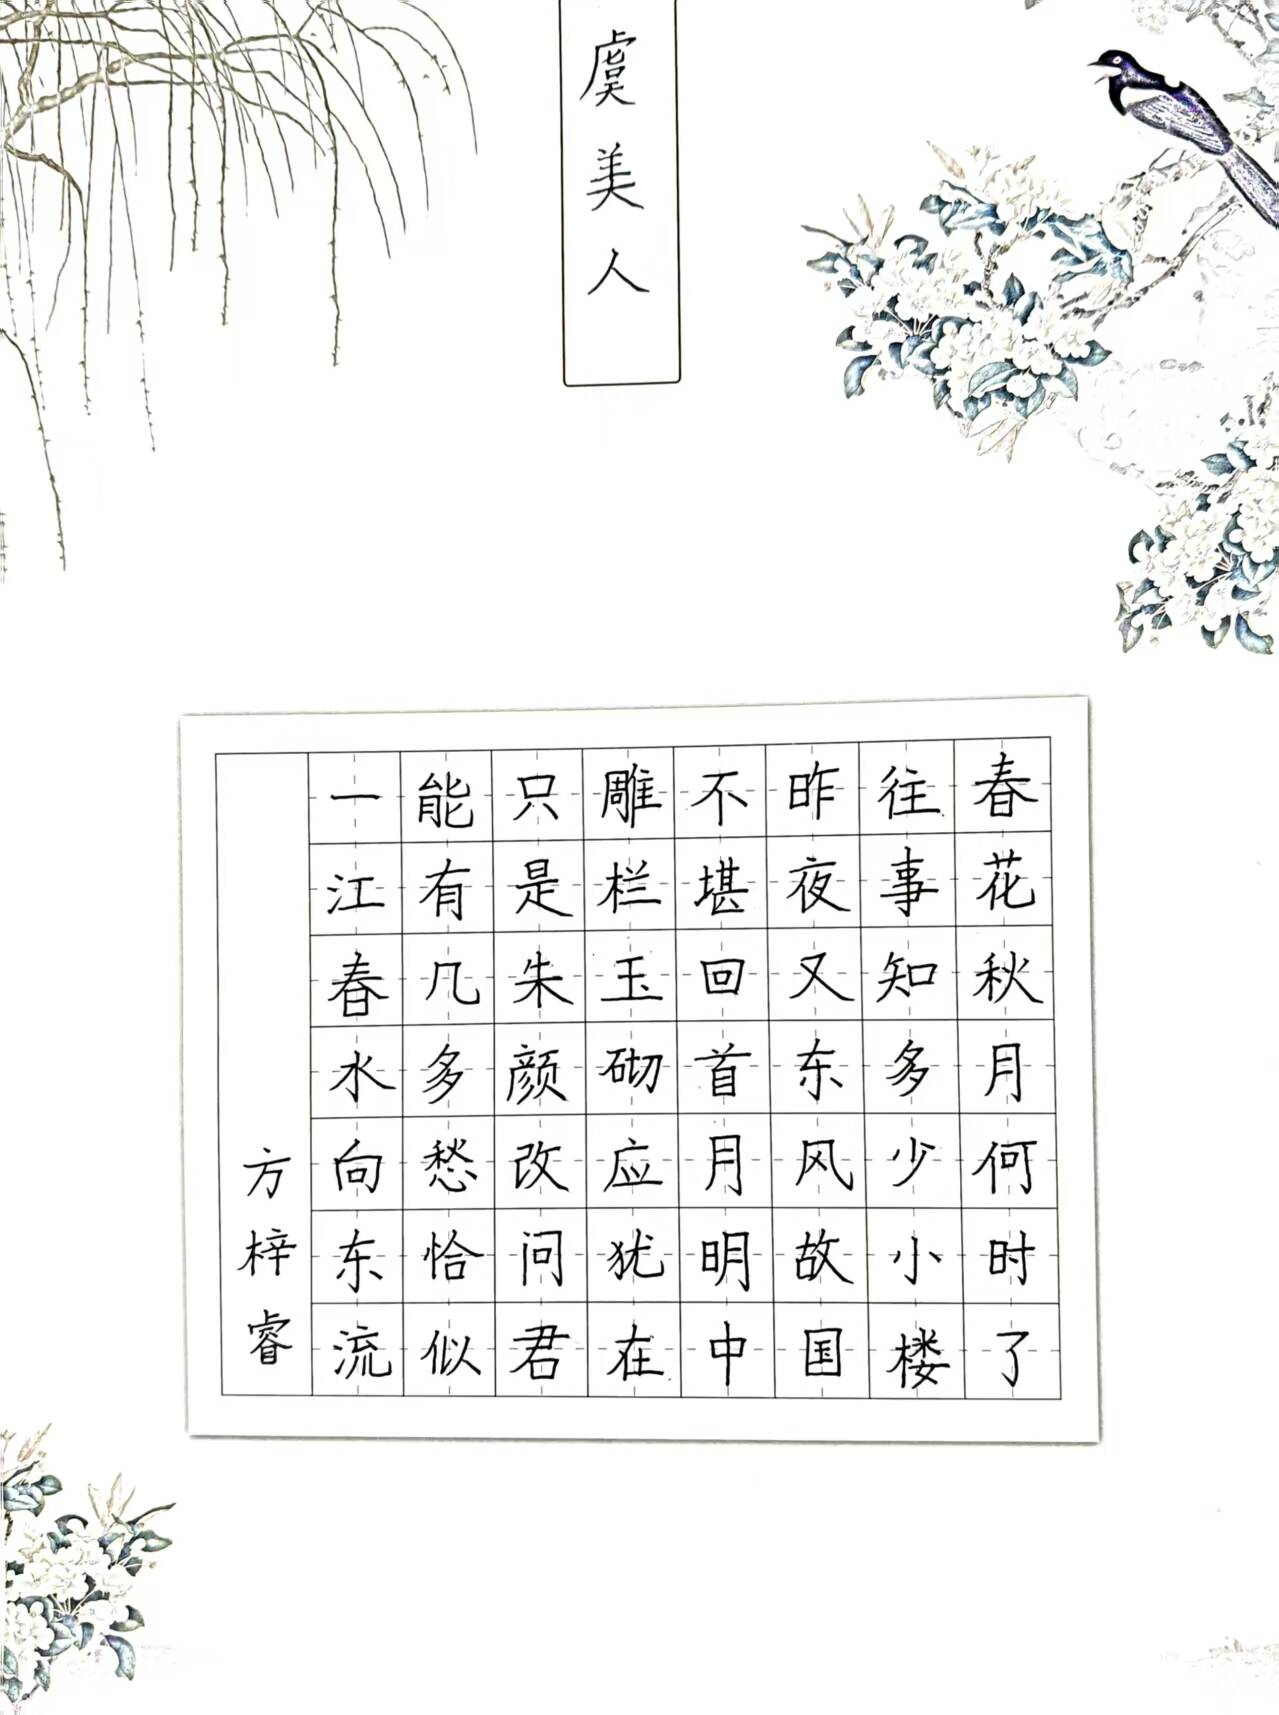 虞美人
春花秋月何时了
往事知多少小楼
昨夜又东风故国
不堪回首月明中
雕栏玉砌应犹在
只是朱颜改问君
能有几多愁恰似
一江春水向东流
方梓睿